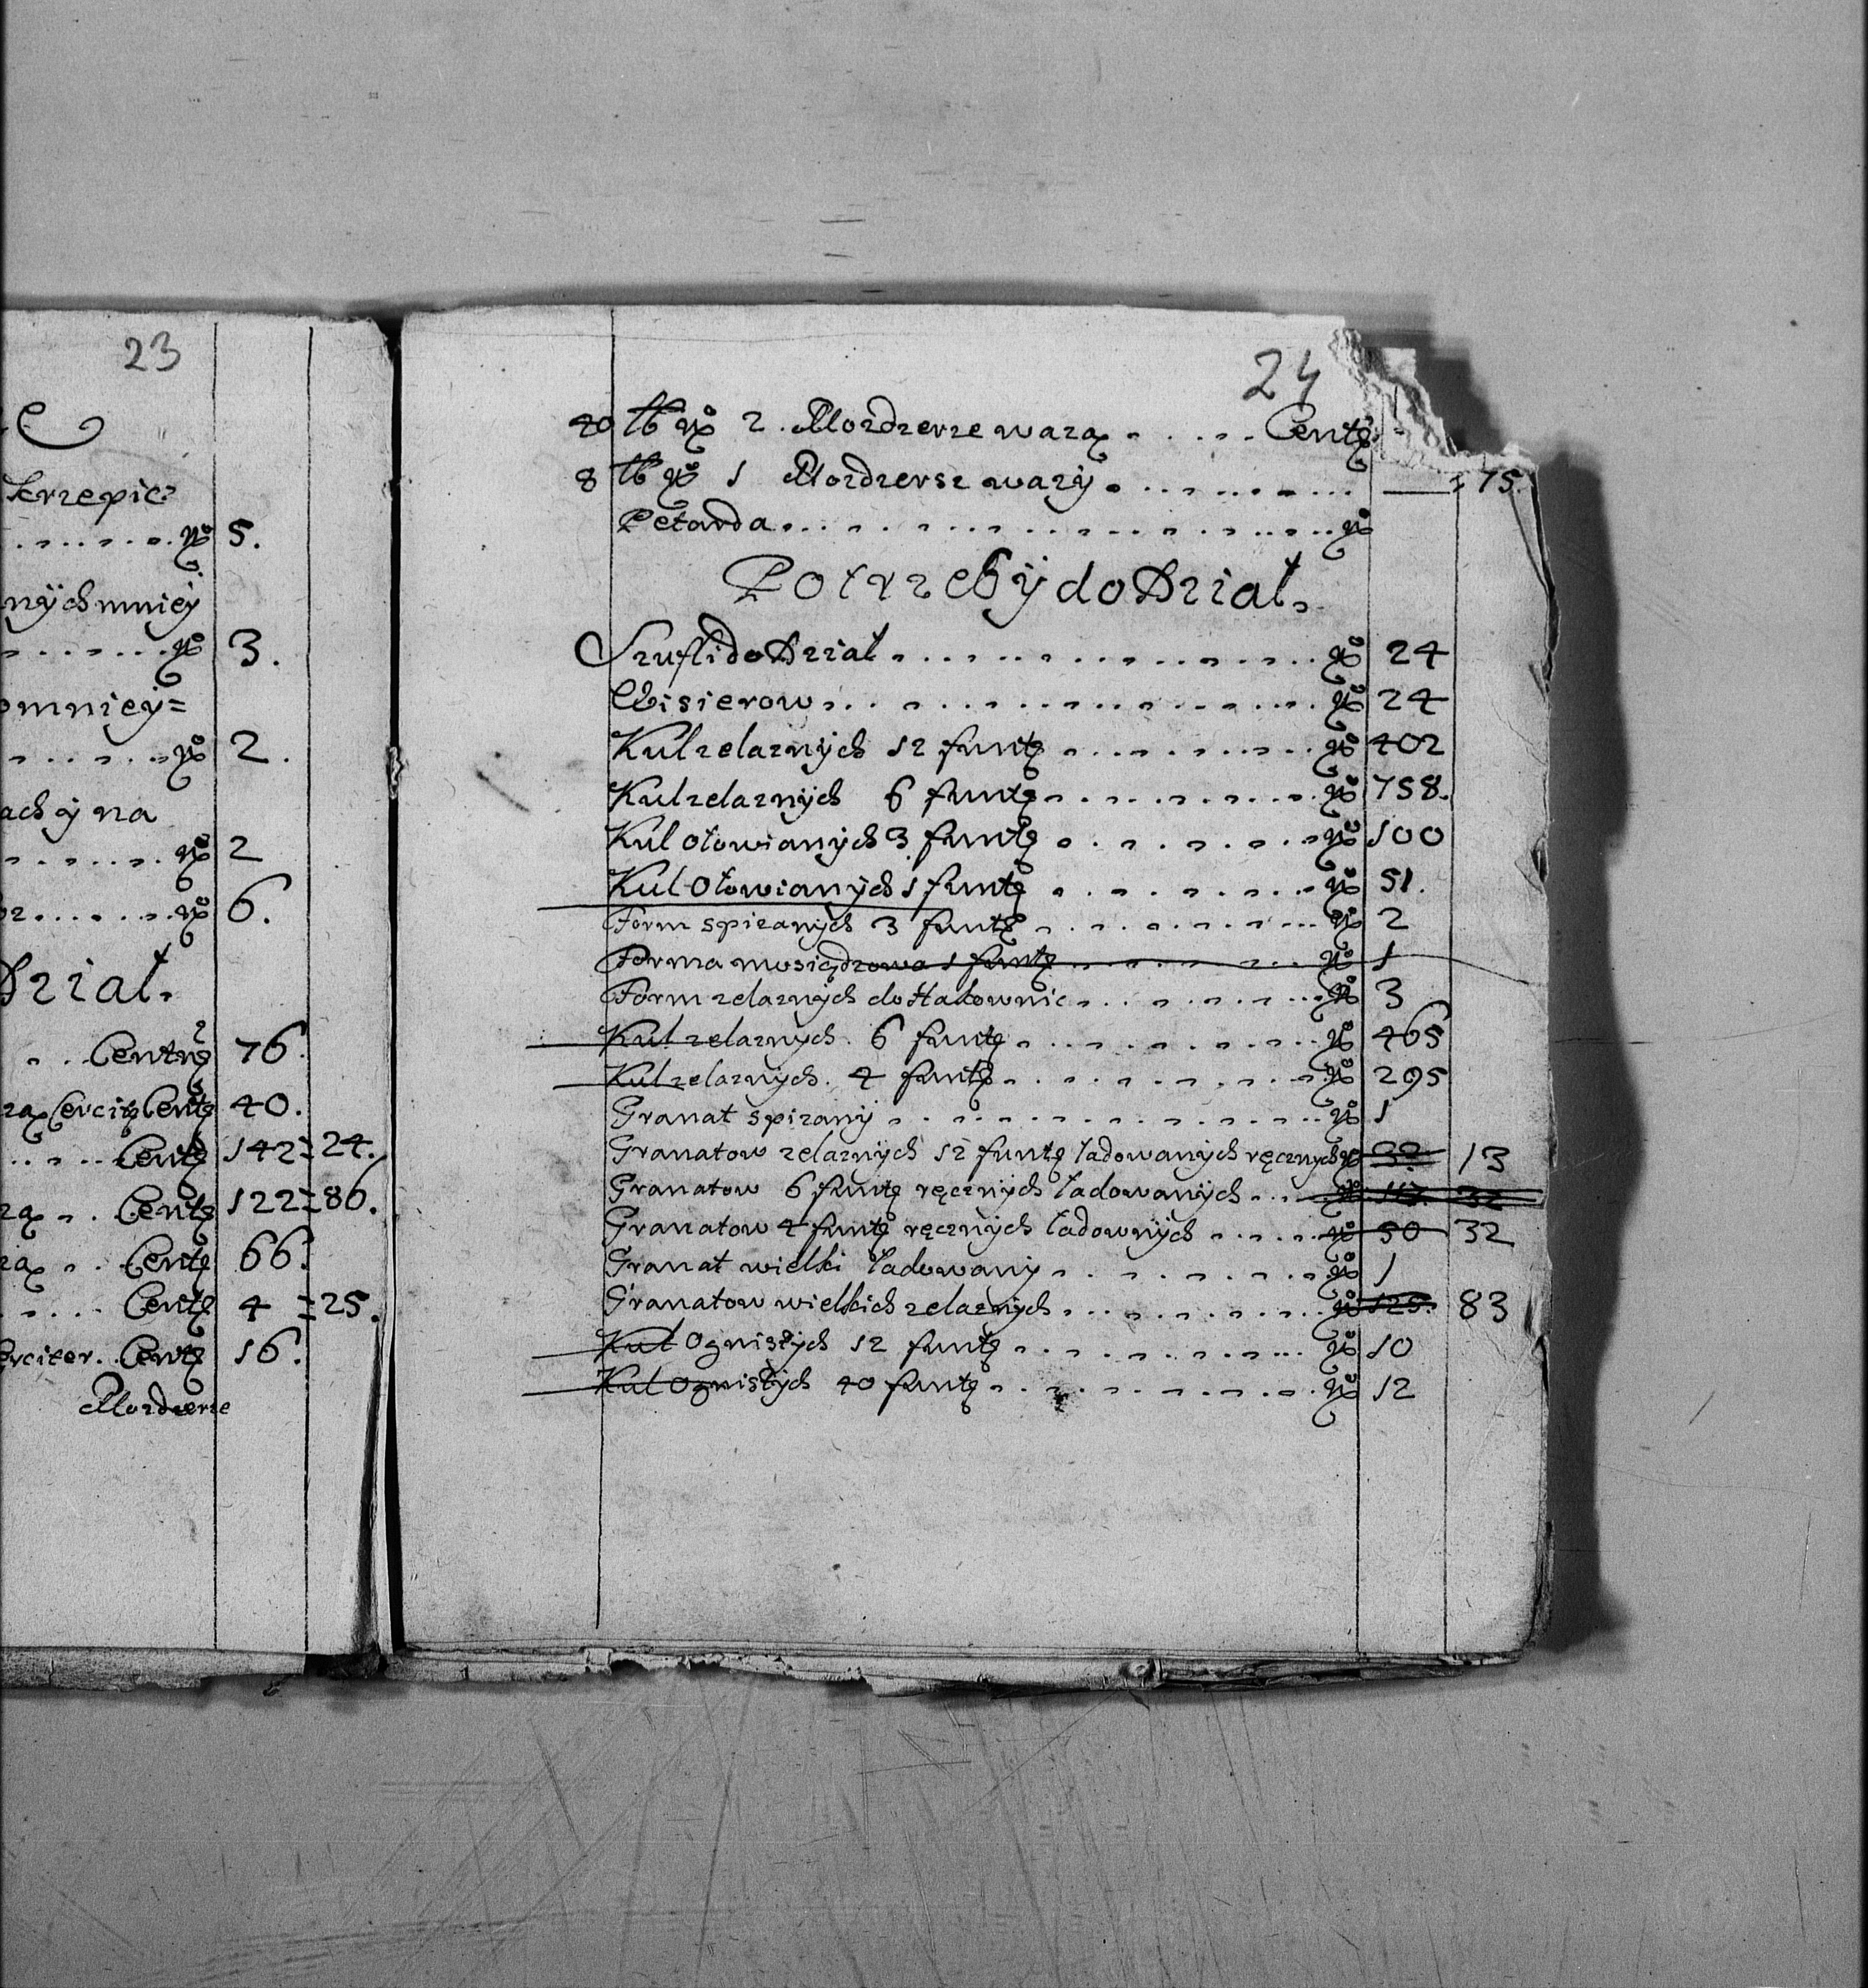 23
krzepic
No 5.
nÿch mnieÿ
No 3.
omnieÿ=
No 2.
ach ÿ na
No 2
No 6.
Dział.
Centnę 76.
Centę 40.
Centę 142=24.
Centę 122=86.
Centę 66.
Centę 4 =25.
erciter. Centę 16.
Mozdzerze
24
40 lb No 2. Mozdzerze wazą Centę
8 lb No 1 Mozdzersz wazÿ =75.
Petarda No
Potrzebÿ do Dział.
Szufli do Dział No 24
Wisierow No 24
Kul zelaznÿch 12 funtę No 402
Kul zelaznÿch 6 funtę No 758.
Kul ołowianÿch 3 funtę No 100
Kul Ołowianÿch 1 funtę No 51.
Form spizanÿch 3 funtę No 2
Forma mosiądzowa 1 funtę No 1
Form zelaznÿch do Hakownic No 3
Kul zelaznÿch 6 funtę No 465
Kul zelaznÿch. 4 funtę No 295
Granat spizanÿ No 1
Granatow zelaznÿch 12 funtę ładowanÿch ręcznÿch No 32 13
Granatow 6 funtę ręcznÿch ładowanÿch No 32
Granatow 4 funtę ręcznÿch ładownÿch No 50 32
Granat wielki ładowany No 1
Granatow wielkich zelaznÿch No 125. 83
Kul Ognistÿch 12 funtę No 10
Kul Ognistÿch 40 funtę No 12